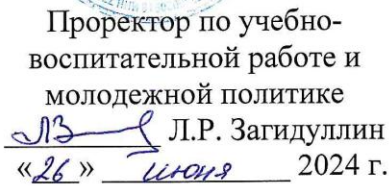 Проректор по учебно-
воспитательной работе и
молодежной политике
Л.Р. Загидуллин
«26» июня 2024 г.